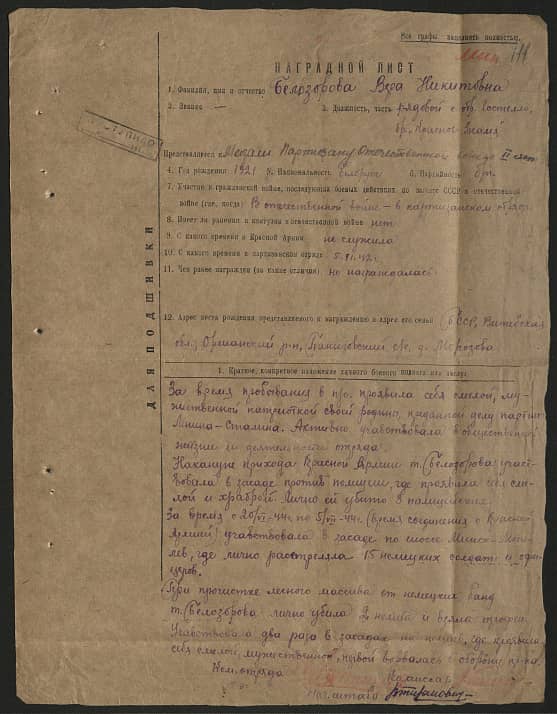 Все графы заполнять полностью.
НАГРАДНОЙ ЛИСТ
1. Фамилия, имя и отчество Белозорова Вера Никитовна
2. Звание — 3. Должность, часть рядовой
бр. "Красное Знамя"
Представляется к Медали Партизану Отечественной войны II ст.
4. Год рождения 1921 5. Национальность 6. Партийность
7. Участие в гражданской войне, последующих боевых действиях по защите СССР и отечественной
войне (где, когда) В отечественной войне – в партизанском отряде
8. Имеет ли ранения и контузии в отечественной войне нет
9. С какого времени в Красной Армии не служила
10. С какого времени в партизанском отряде
11. Чем ранее награжден (за какие отличия) не награждалась
12. Адрес места рождения представляемого к награждению и адрес его семьи БССР, Витебская
обл, Оршанский р-н, с/с, д. Морозова
ДЛЯ ПОДШИВКИ
1. Краткое, конкретное изложение личного боевого подвига или заслуг
За время пребывания в п/о. проявила себя смелой, му-
жественной патриоткой своей родины, преданной делу партии
Ленина-Сталина. Активно учавствовала в общественной
жизни и деятельности отряда.
Накануне прихода Красной Армии т. Белозорова участ-
вовала в засаде против полиции, где проявила себя сме-
лой и храброй. Лично ей убито 8 полицейских.
За время с по (время соединения с Красной
Армией) учавствовала в засаде по шоссе Минск-Моги-
лев, где лично расстреляла 15 немецких солдат и офи-
церов.
При прочистке лесного массива от немецких банд
т. Белозорова лично убила 2 немцев и взяла трофеи.
два раза в засадах на немцев, где проявила
себя смелой, мужественной,
Ком. отряда Комиссар
Нач. штаба